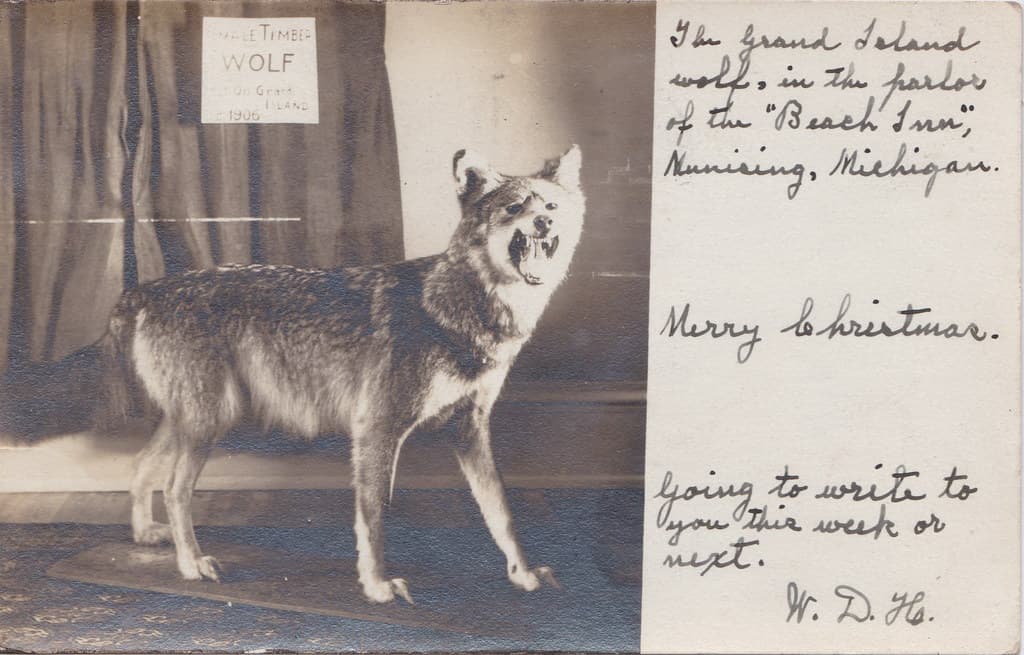 MALE TIMBER
WOLF
On Grand
ISLAND
1906
The Grand Island
wolf, in the parlor
of the "Beach Inn",
Munising, Michigan.
Merry Christmas.
Going to write to
you this week or
next.
W. D. H.